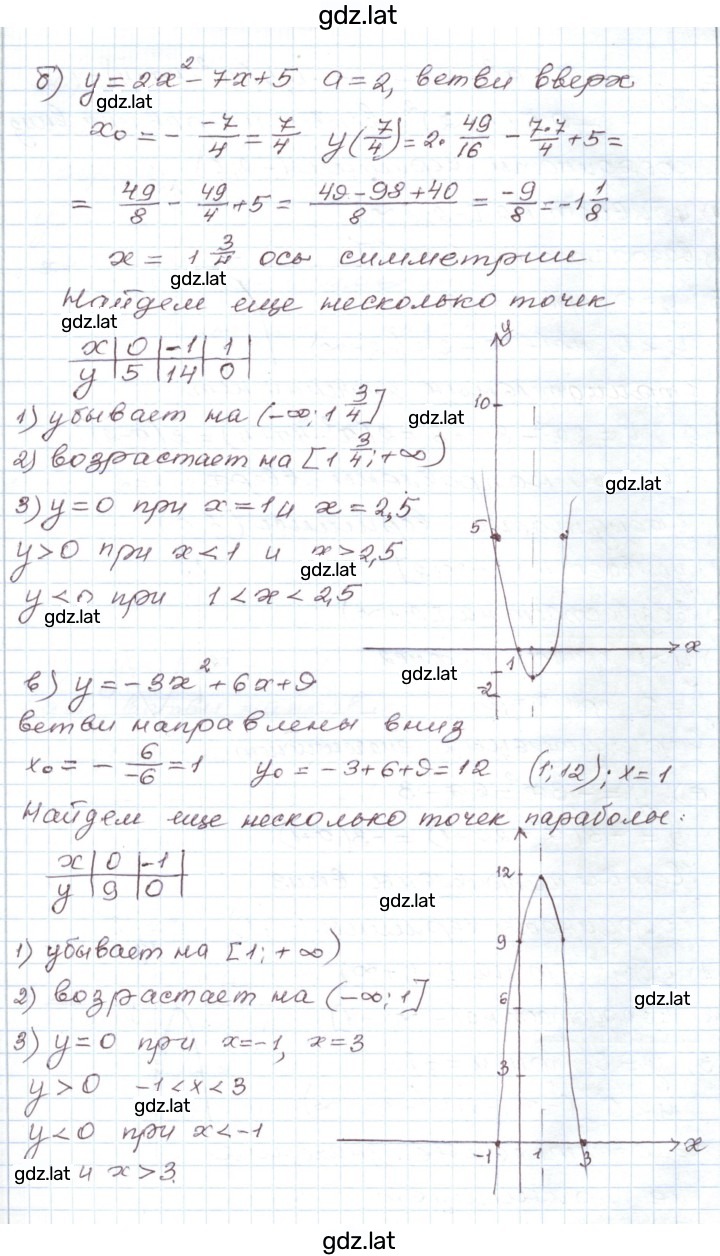 gdz.lat
б) y = 2x² - 7x + 5 a = 2, ветви вверх
gdz.lat
x₀ = - -7/4 = 7/4 y(7/4) = 2 · 49/16 - 7·7/4 + 5 =
= 49/8 - 49/4 + 5 = 49 - 98 + 40/8 = -9/8 = -1 1/8
x = 1 3/4 ось симметрии
gdz.lat
Найдем еще несколько точек
gdz.lat
x | 0 | -1 | 1
y | 5 | 14 | 0
1) убывает на (-∞; 1 3/4]
gdz.lat
2) возрастает на [1 3/4; +∞)
3) y = 0 при x = 1 и x = 2,5
y > 0 при x < 1 и x > 2,5
gdz.lat
y < 0 при 1 < x < 2,5
gdz.lat
y
10
gdz.lat
5
x
1
-2
gdz.lat
в) y = -3x² + 6x + 9
ветви направлены вниз
x₀ = - 6/-6 = 1 y₀ = -3 + 6 + 9 = 12 (1; 12); x = 1
Найдем еще несколько точек параболы:
x | 0 | -1
y | 9 | 0
gdz.lat
1) убывает на [1; +∞)
2) возрастает на (-∞; 1]
3) y = 0 при x = -1, x = 3
y > 0 -1 < x < 3
gdz.lat
y < 0 при x < -1
gdz.lat и x > 3.
12
9
6
gdz.lat
3
x
-1 1 3
gdz.lat